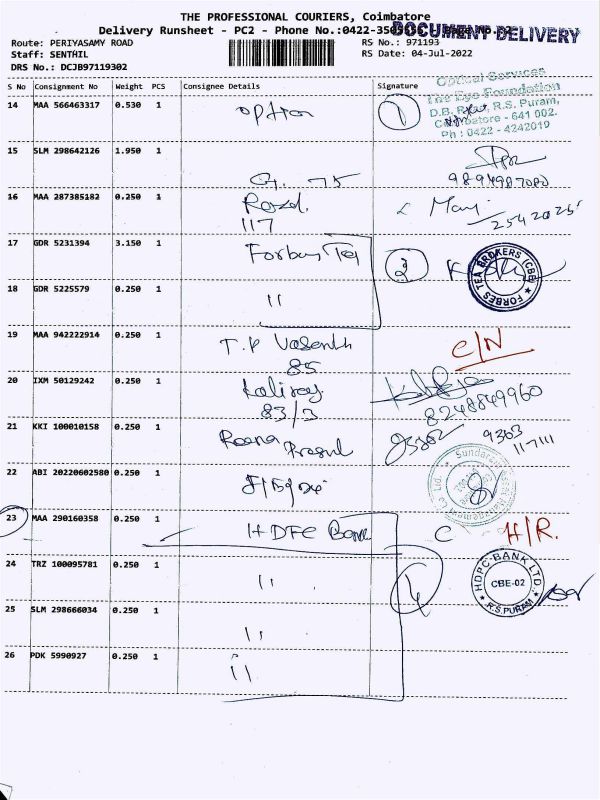 THE PROFESSIONAL COURIERS, Coimbatore
Delivery Runsheet - PC2 - Phone No.:0422-
DOCUMENT DELIVERY
Route: PERIYASAMY ROAD
RS No.: 971193
Staff: SENTHIL
RS Date: 04-Jul-2022
DRS No.: DCJB97119302
S No Consignment No Weight PCS Consignee Details Signature
Optical Services
The Eye Foundation
D.B. R.S. Puram,
Coimbatore - 641 002.
Ph : 0422 - 4242019
14 MAA 566463317 0.530 1 option 1
15 SLM 298642126 1.950 1
G. 75
9894987080
16 MAA 287385182 0.250 1
117
17 GDR 5231394 3.150 1 Forbes Tea
FORBES TEA BROKERS (CBE)
18 GDR 5225579 0.250 1 11
19 MAA 942222914 0.250 1 T.P Vasanth C/N
85
20 IXM 50129242 0.250 1
83/3
8248849960
21 KKI 100010158 0.250 1
9363
117111
22 ABI 20220602580 0.250 1
23 MAA 290160358 0.250 1 HDFC Bank C H/R.
24 TRZ 100095781 0.250 1 11 4
HDFC BANK LTD
CBE-02
R.S.PURAM
25 SLM 298666034 0.250 1 11
26 PDK 5990927 0.250 1 11